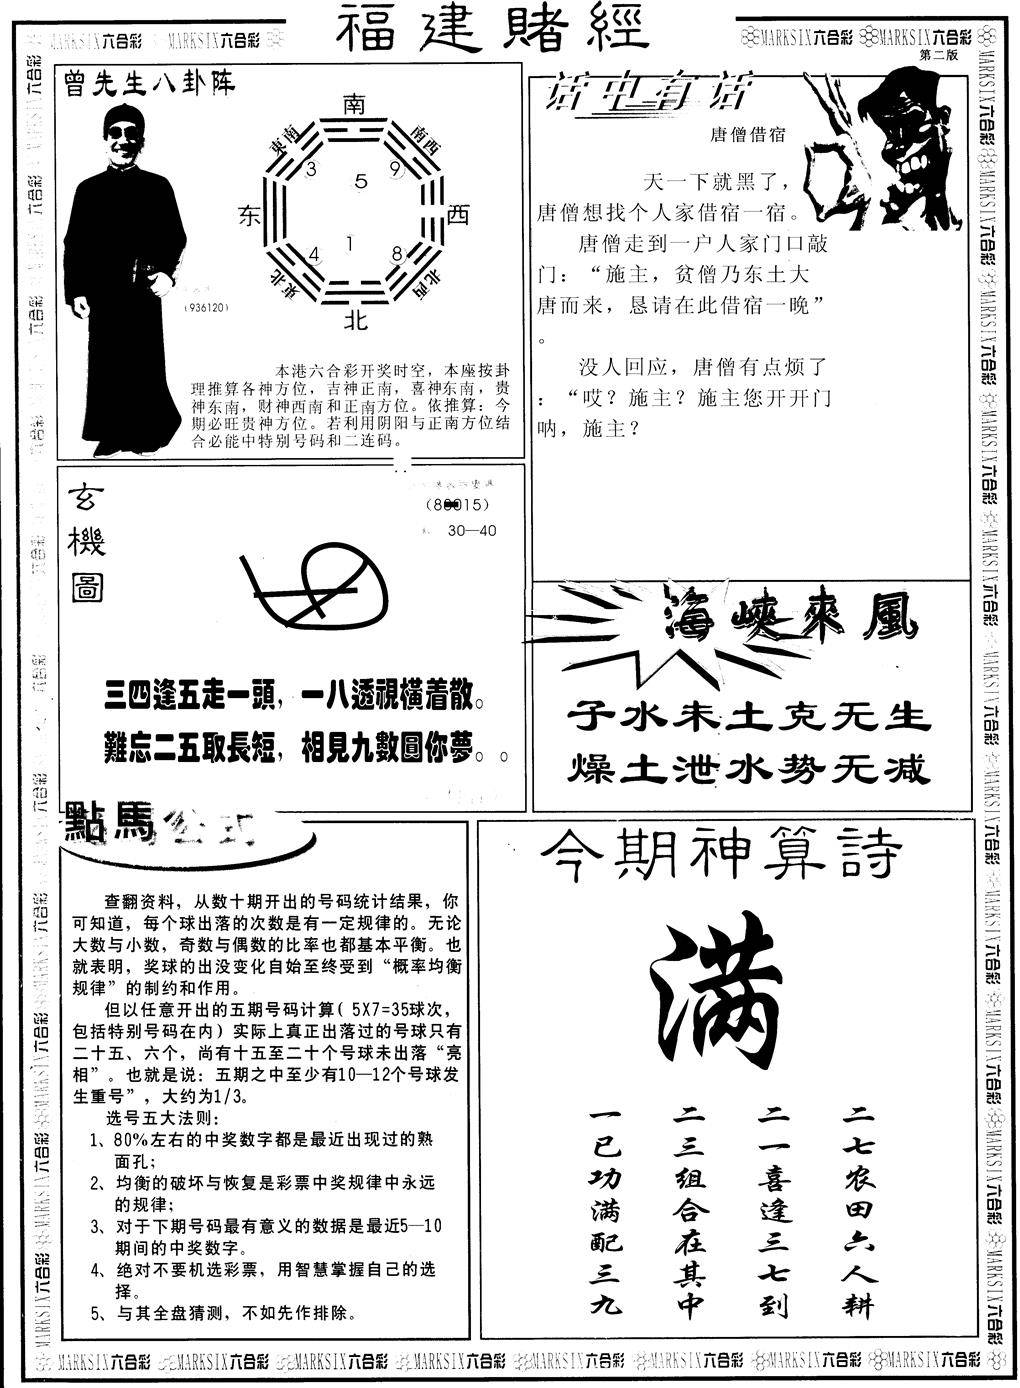 福建賭經
MARKSIX六合彩 MARKSIX六合彩
MARKSIX六合彩 MARKSIX六合彩
第二版
曾先生八卦阵
南
東南
南西
3
9
5
东
西
1
4
8
東北
北西
北
(936120)
本港六合彩开奖时空，本座按卦
理推算各神方位，吉神正南，喜神东南，贵
神东南，财神西南和正南方位。依推算：今
期必旺贵神方位。若利用阴阳与正南方位结
合必能中特别号码和二连码。
话中有话
唐僧借宿
天一下就黑了，
唐僧想找个人家借宿一宿。
唐僧走到一户人家门口敲
门：“施主，贫僧乃东土大
唐而来，恳请在此借宿一晚”
。
没人回应，唐僧有点烦了
：“哎？施主？施主您开开门
呐，施主？
玄機圖
30—40
三四逢五走一頭，一八透視橫着散。
難忘二五取長短，相見九數圓你夢。。
海峽來風
子水未土克无生
燥土泄水势无减
點馬公式
查翻资料，从数十期开出的号码统计结果，你
可知道，每个球出落的次数是有一定规律的。无论
大数与小数，奇数与偶数的比率也都基本平衡。也
就表明，奖球的出没变化自始至终受到“概率均衡
规律”的制约和作用。
但以任意开出的五期号码计算( 5X7=35球次，
包括特别号码在内) 实际上真正出落过的号球只有
二十五、六个，尚有十五至二十个号球未出落“亮
相”。也就是说：五期之中至少有10—12个号球发
生重号”，大约为1/3。
选号五大法则:
1、80%左右的中奖数字都是最近出现过的熟
面孔;
2、均衡的破坏与恢复是彩票中奖规律中永远
的规律;
3、对于下期号码最有意义的数据是最近5—10
期间的中奖数字。
4、绝对不要机选彩票，用智慧掌握自己的选
择。
5、与其全盘猜测，不如先作排除。
今期神算詩
满
二七农田六人耕
二一喜逢三七到
二三组合在其中
一已功满配三九
MARKSIX六合彩 MARKSIX六合彩 MARKSIX六合彩 MARKSIX六合彩 MARKSIX六合彩 MARKSIX六合彩 MARKSIX六合彩 MARKSIX六合彩